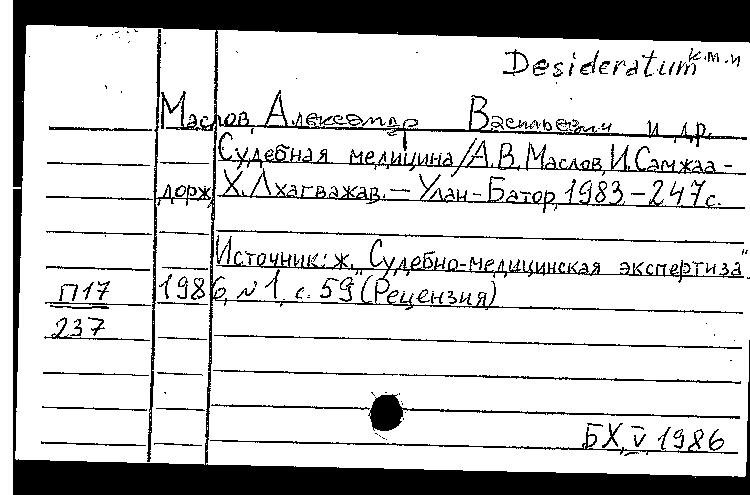 Desideratum к.м.и
Маслов, Александр Васильевич и др.
Судебная медицина/А.В.Маслов, И.Самжаа-
дорж, Х.Лхагважав. — Улан-Батор, 1983 – 247с.
Источник: ж. „Судебно-медицинская экспертиза"
П17 1986, №1, с. 59 (Рецензия)
237
БХ, V 1986